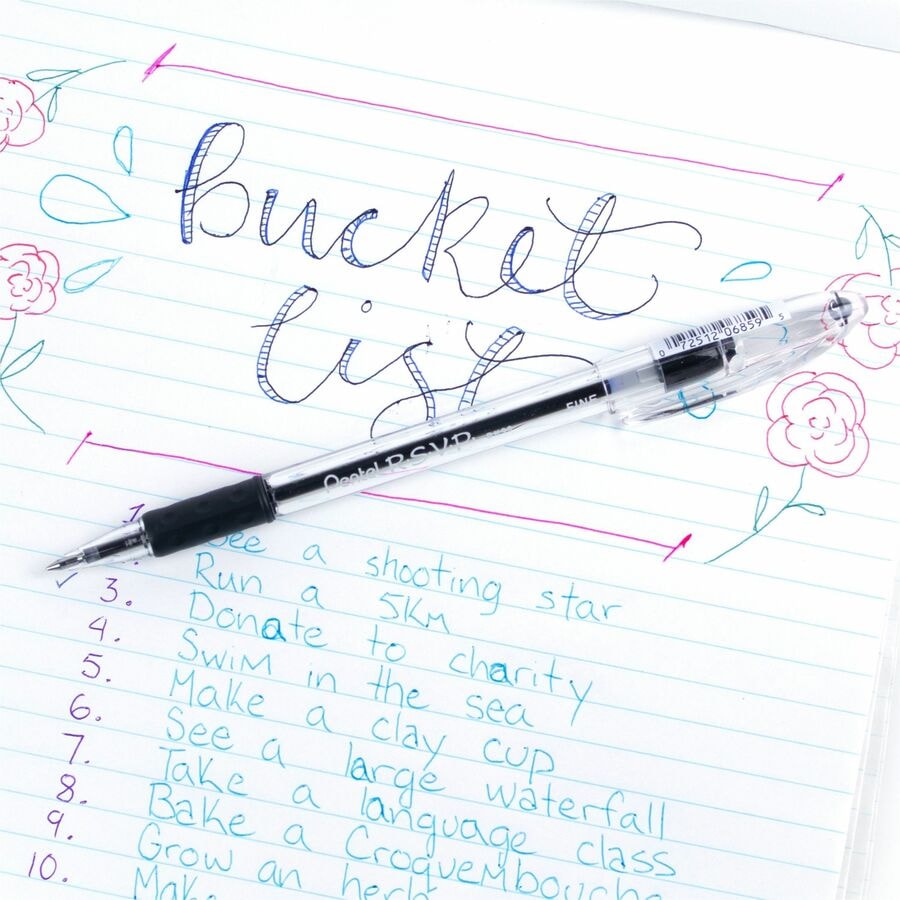 bucket
list
0 72512 06859 5
Pentel R.S.V.P. FINE
1. See a shooting star
Run a 5Km
✓ 3. Donate to charity
4. Swim in the sea
5. Make a clay cup
6. See a large waterfall
7. Take a language class
8. Bake a Croquembouche
9. Grow an herb
10. Make